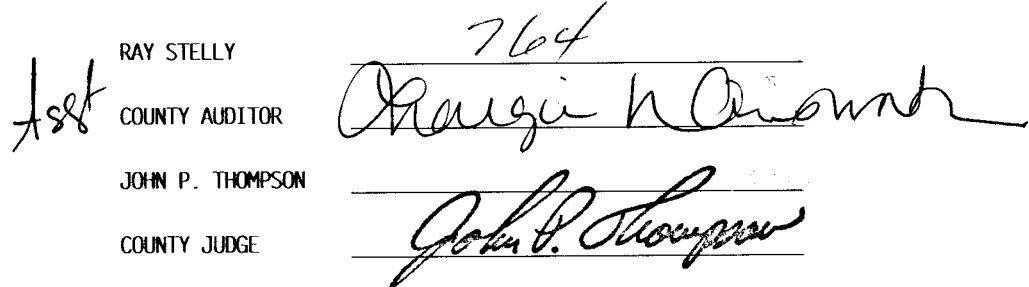 RAY STELLY 764
Asst COUNTY AUDITOR
JOHN P. THOMPSON
COUNTY JUDGE John P. Thompson